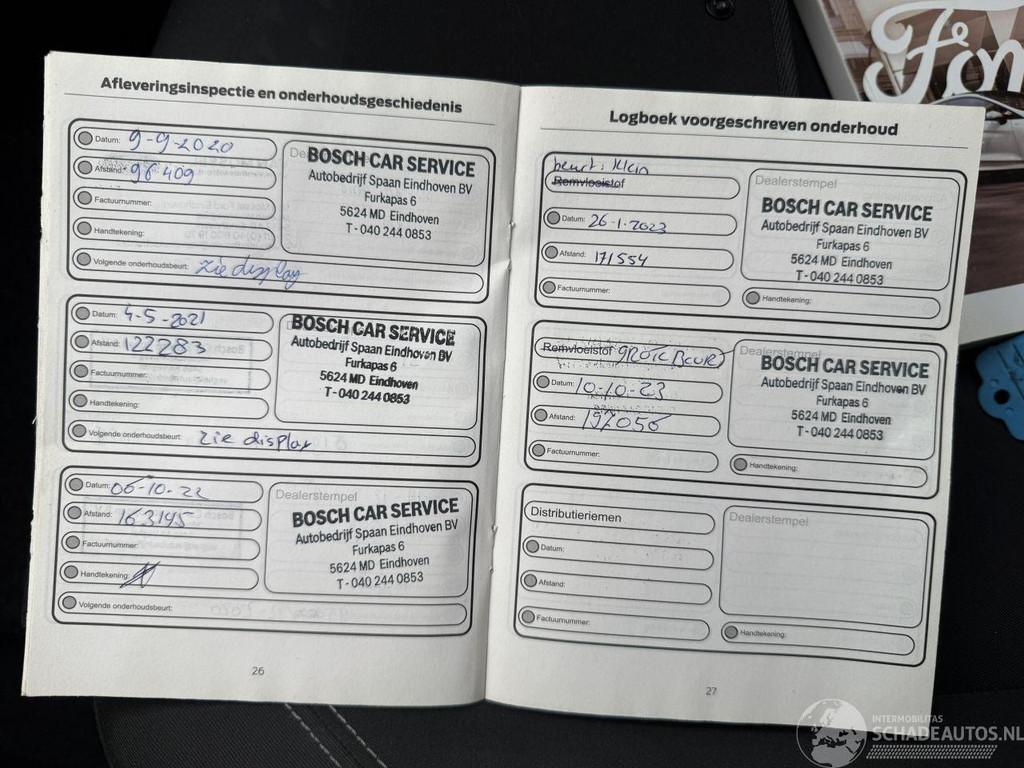 Afleveringsinspectie en onderhoudsgeschiedenis
Datum: 9-9-2020
Afstand: 98 409
Factuurnummer:
Handtekening:
Volgende onderhoudsbeurt: zie display
BOSCH CAR SERVICE
Autobedrijf Spaan Eindhoven BV
Furkapas 6
5624 MD Eindhoven
T - 040 244 0853
Datum: 4-5-2021
Afstand: 122283
Factuurnummer:
Handtekening:
Volgende onderhoudsbeurt: zie display
BOSCH CAR SERVICE
Autobedrijf Spaan Eindhoven BV
Furkapas 6
5624 MD Eindhoven
T - 040 244 0853
Datum: 06-10-22
Afstand: 163145
Factuurnummer:
Handtekening:
Volgende onderhoudsbeurt:
Dealerstempel
BOSCH CAR SERVICE
Autobedrijf Spaan Eindhoven BV
Furkapas 6
5624 MD Eindhoven
T - 040 244 0853
26
Logboek voorgeschreven onderhoud
beurt: klein
Remvloeistof
Datum: 26-1-2023
Afstand: 171554
Factuurnummer:
Dealerstempel
BOSCH CAR SERVICE
Autobedrijf Spaan Eindhoven BV
Furkapas 6
5624 MD Eindhoven
T - 040 244 0853
Handtekening:
Remvloeistof GROTE BEURT
Datum: 10-10-23
Afstand: 197056
Factuurnummer:
Dealerstempel
BOSCH CAR SERVICE
Autobedrijf Spaan Eindhoven BV
Furkapas 6
5624 MD Eindhoven
T - 040 244 0853
Handtekening:
Distributieriemen
Datum:
Afstand:
Factuurnummer:
Dealerstempel
Handtekening:
27
INTERMOBILITAS
SCHADEAUTOS.NL